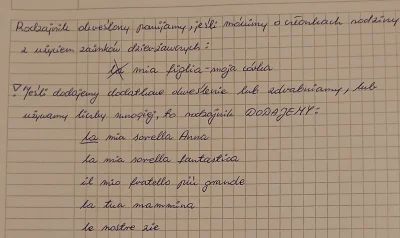 Rodzajnik określony pomijamy, jeśli mówimy o członkach rodziny
z użyciem zaimków dzierżawczych:
la mia figlia - moja córka
Jeśli dodajemy dodatkowe określenie lub zdrabniamy, lub
używamy liczby mnogiej, to rodzajnik DODAJEMY:
la mia sorella Anna
la mia sorella fantastica
il mio fratello più grande
la tua mammina
le nostre zie